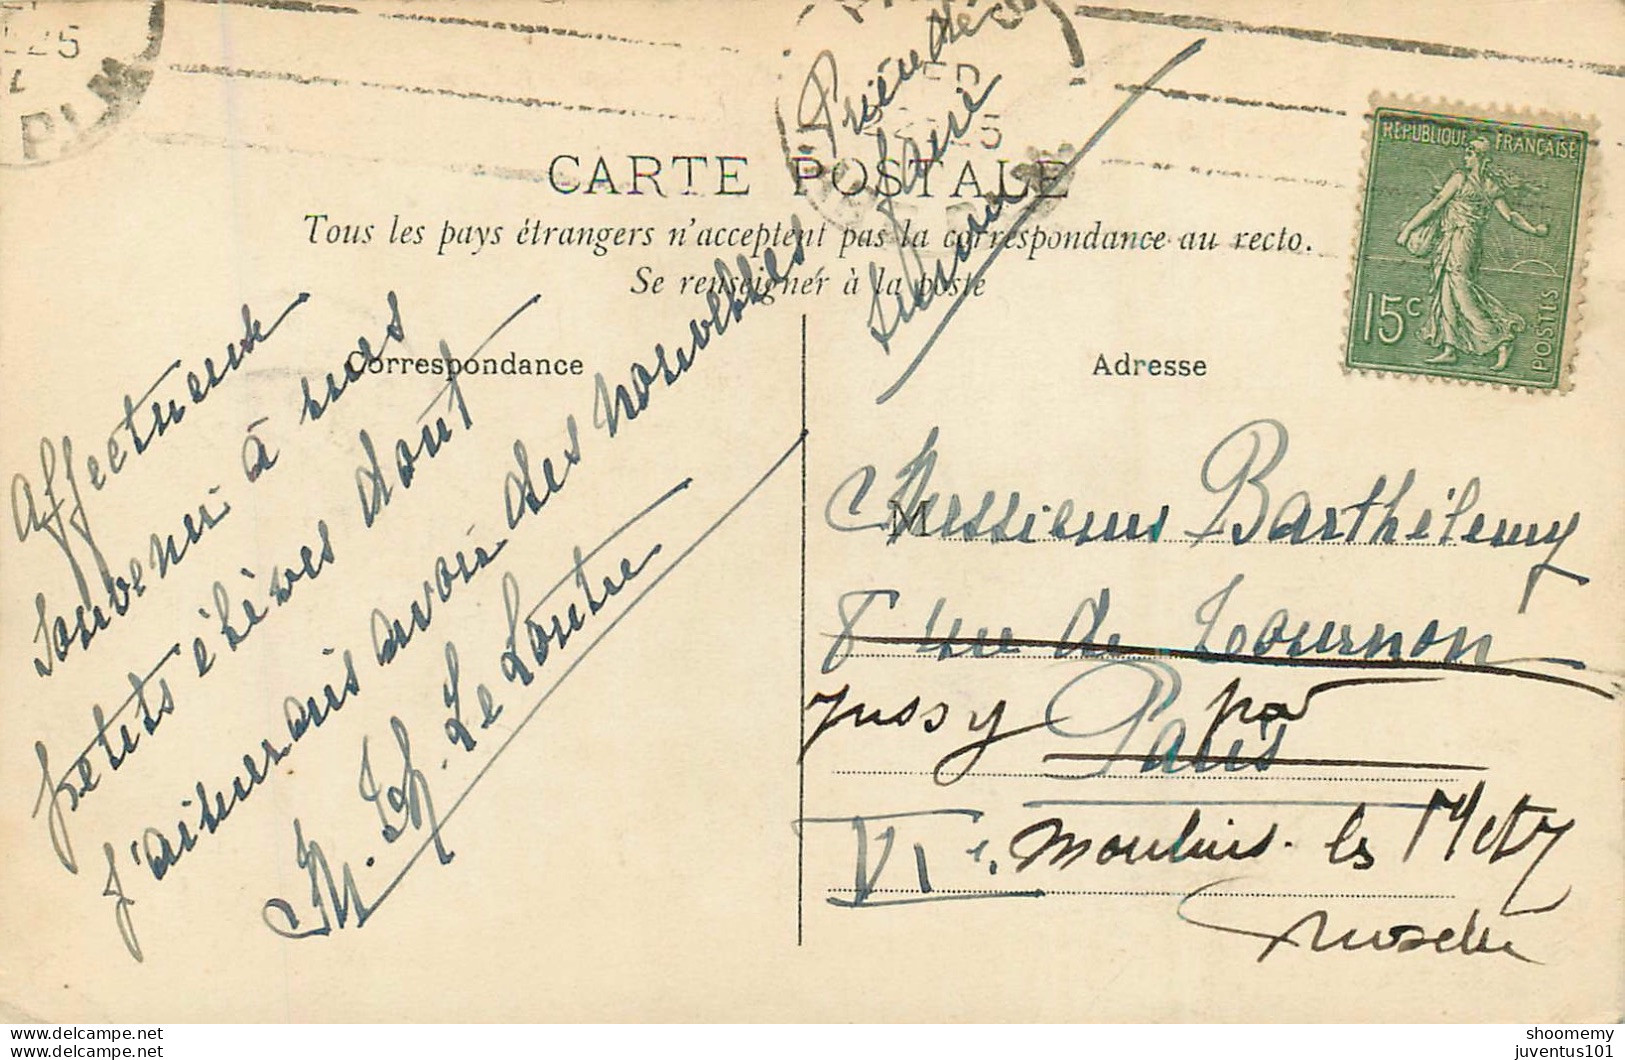 Prière de
faire
suivre
CARTE POSTALE
Tous les pays étrangers n'acceptent pas la correspondance au recto.
Se renseigner à la poste
Correspondance
Affectueux
souvenir à mes
petits élèves dont
j'aimerais avoir des nouvelles
M. Th. Le Loutre
Adresse
REPUBLIQUE FRANÇAISE
15c
POSTES
Messieurs Barthélemy
8 rue de Tournon
Jussy par
Paris
VIe. Moulins. les Metz
Moselle
shoomemy
juventus101